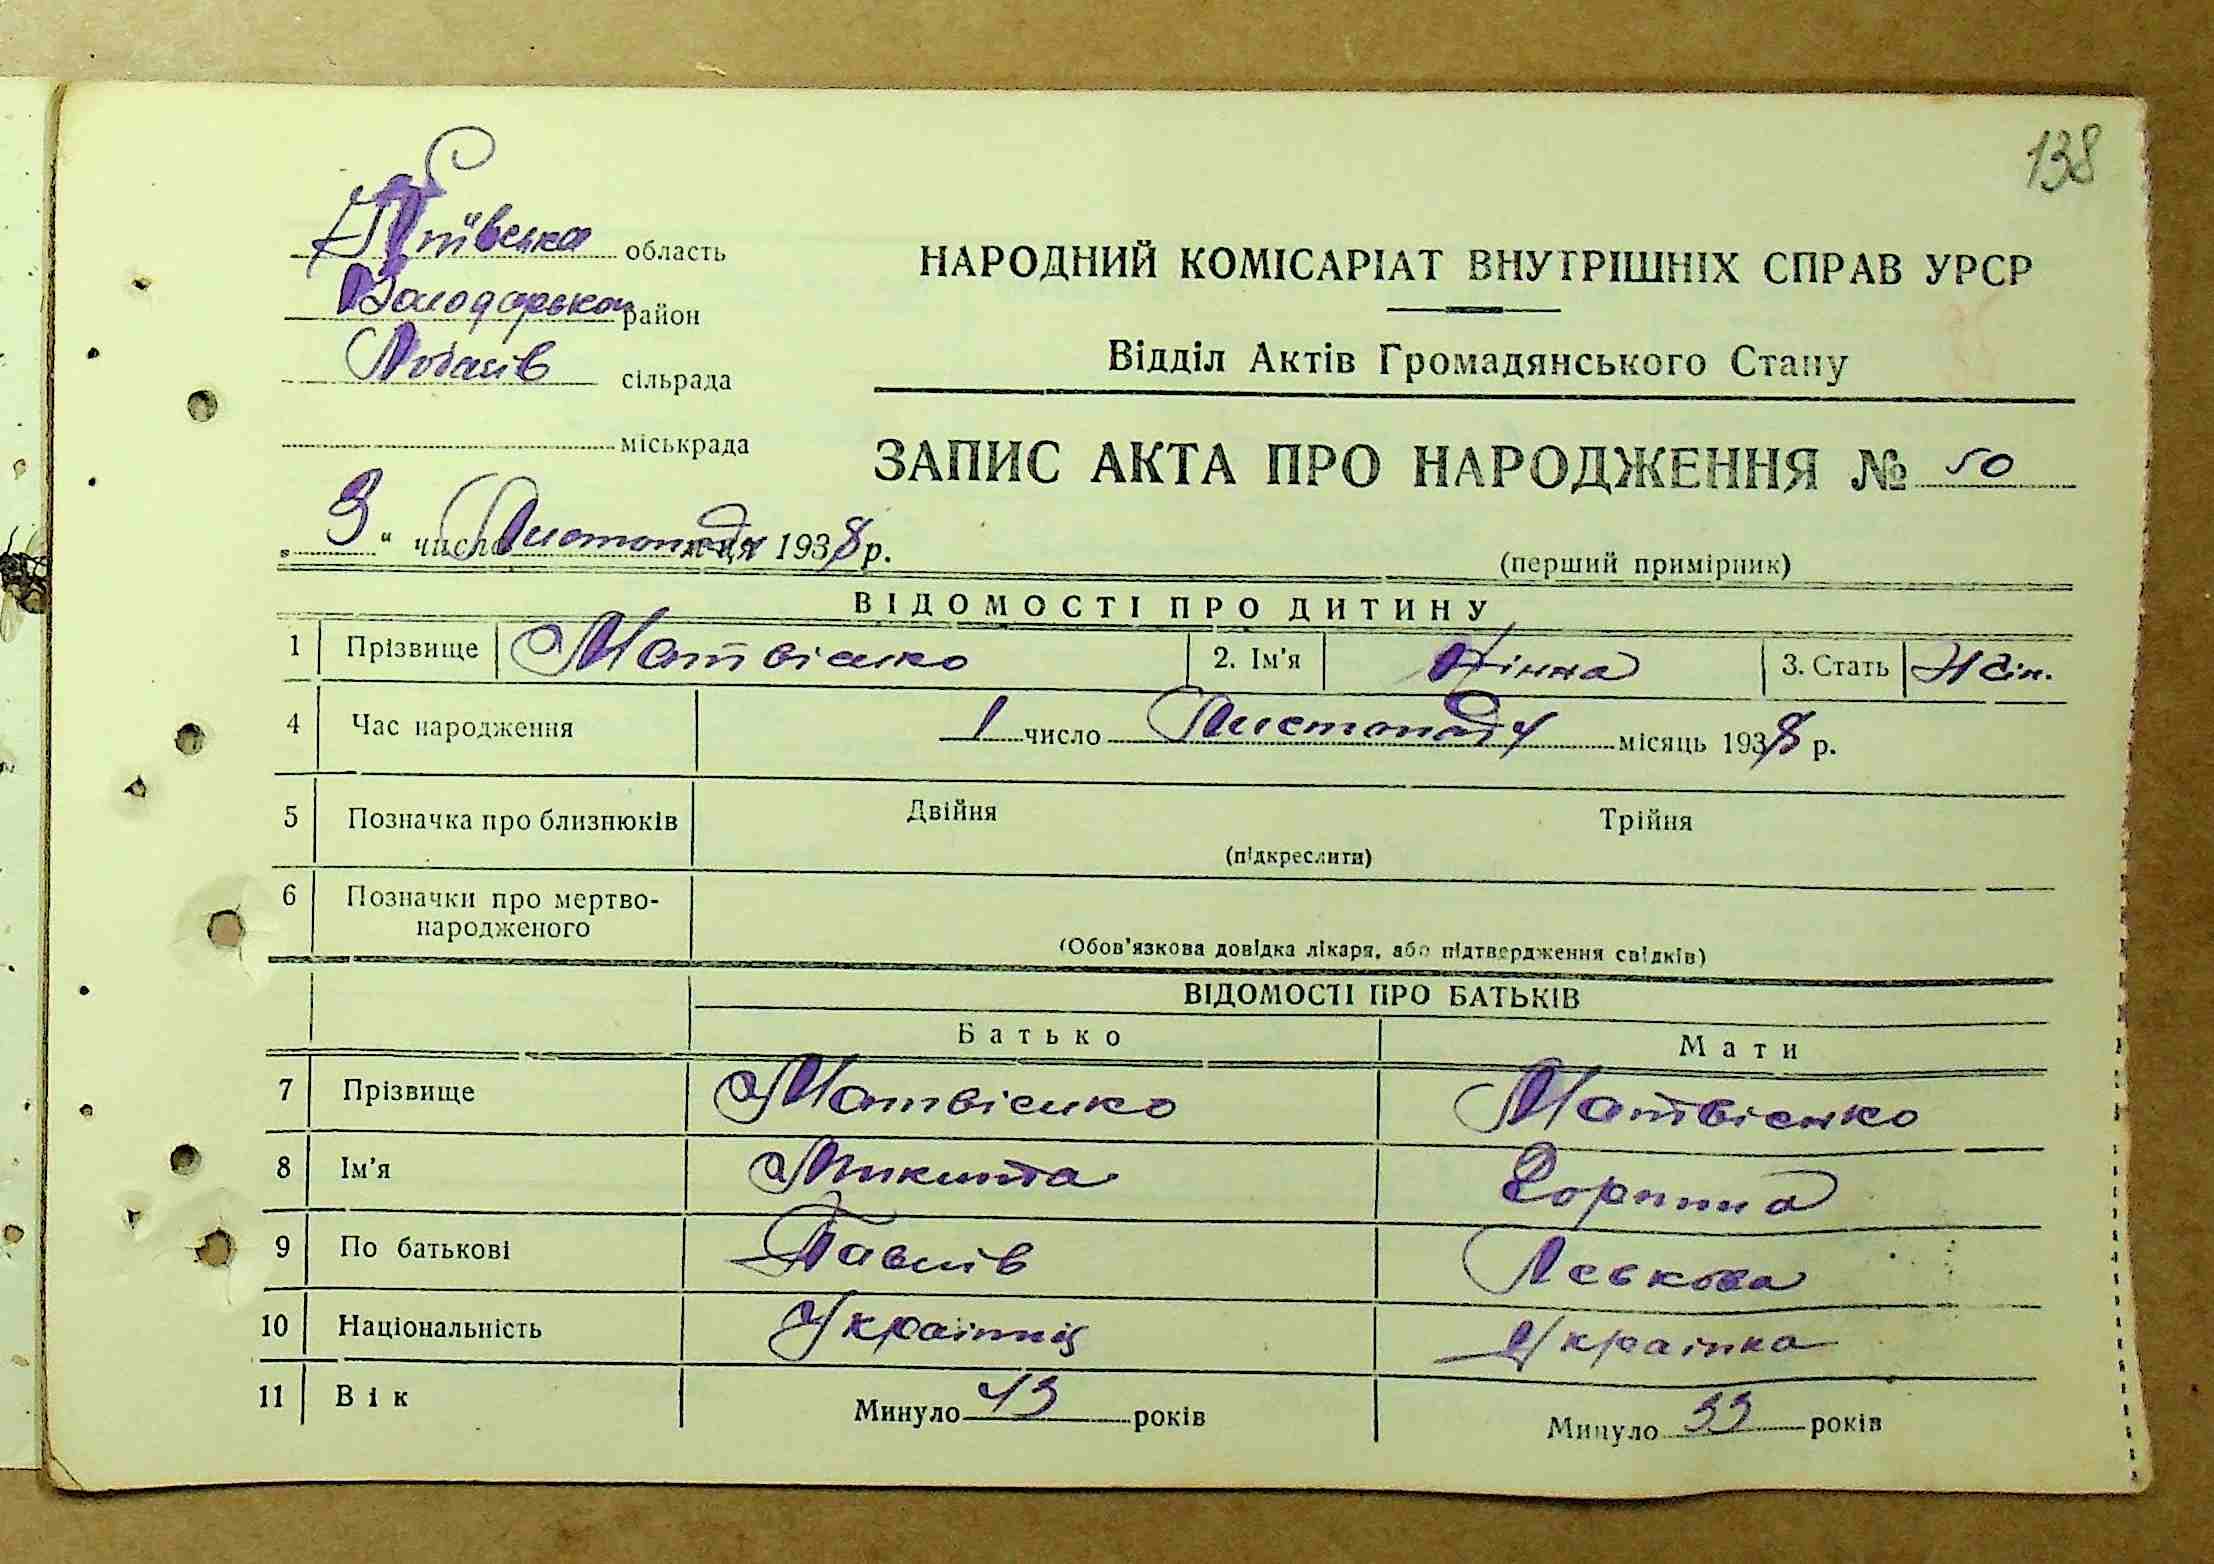 138
Київська область
Володарськ район
Лобачів сільрада
міськрада
НАРОДНИЙ КОМІСАРІАТ ВНУТРІШНІХ СПРАВ УРСР
Відділ Актів Громадянського Стану
ЗАПИС АКТА ПРО НАРОДЖЕННЯ № 50
„3“ число Листопада м-ця 1938 р.
(перший примірник)
ВІДОМОСТІ ПРО ДИТИНУ
1 Прізвище Матвієнко 2. Ім'я Нінна 3. Стать Жін.
4 Час народження 1 число Листопаду місяць 1938 р.
5 Позначка про близнюків Двійня Трійня
(підкреслити)
6 Позначки про мертво-
народженого
(Обов'язкова довідка лікаря, або підтвердження свідків)
ВІДОМОСТІ ПРО БАТЬКІВ
Батько Мати
7 Прізвище Матвієнко Матвієнко
8 Ім'я Микита Горпина
9 По батькові Павлів Левкова
10 Національність Українець Українка
11 Вік Минуло 43 років Минуло 33 років